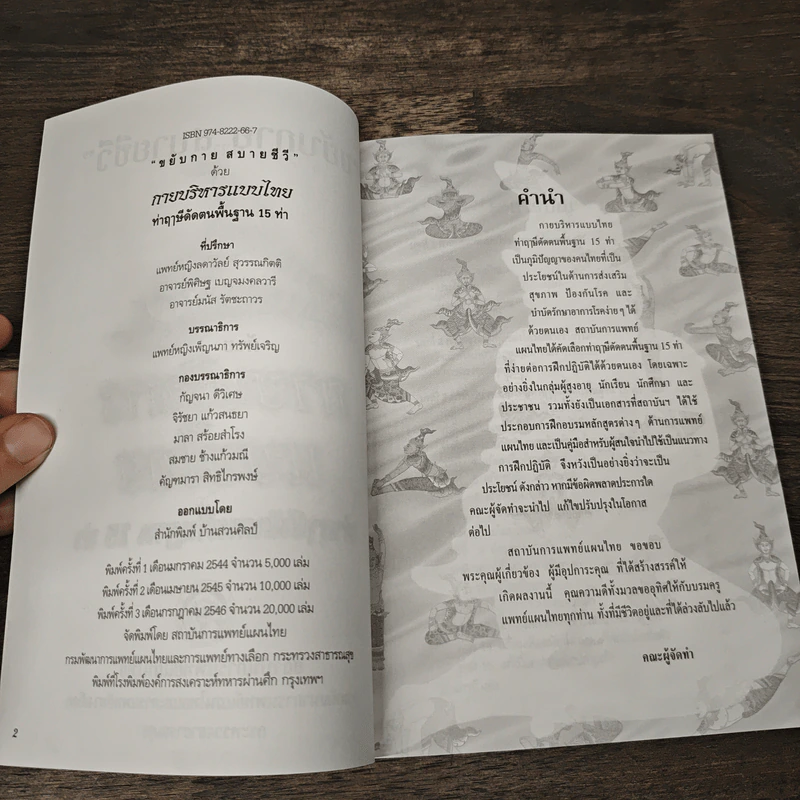 ISBN 974-8222-66-7
"ขยับกาย สบายชีวี"
ด้วย
กายบริหารแบบไทย
ท่าฤๅษีดัดตนพื้นฐาน 15 ท่า
ที่ปรึกษา
แพทย์หญิงลดาวัลย์ สุวรรณกิตติ
อาจารย์พิศิษฐ เบญจมงคลวารี
อาจารย์มนัส รัตชะถาวร
บรรณาธิการ
แพทย์หญิงเพ็ญนภา ทรัพย์เจริญ
กองบรรณาธิการ
กัญจนา ดีวิเศษ
จิรัชยา แก้วสนธยา
มาลา สร้อยสำโรง
สมชาย ช้างแก้วมณี
คัญฑมารา สิทธิไกรพงษ์
ออกแบบโดย
สำนักพิมพ์ บ้านสวนศิลป์
พิมพ์ครั้งที่ 1 เดือนมกราคม 2544 จำนวน 5,000 เล่ม
พิมพ์ครั้งที่ 2 เดือนเมษายน 2545 จำนวน 10,000 เล่ม
พิมพ์ครั้งที่ 3 เดือนกรกฎาคม 2546 จำนวน 20,000 เล่ม
จัดพิมพ์โดย สถาบันการแพทย์แผนไทย
กรมพัฒนาการแพทย์แผนไทยและการแพทย์ทางเลือก กระทรวงสาธารณสุข
พิมพ์ที่โรงพิมพ์องค์การสงเคราะห์ทหารผ่านศึก กรุงเทพฯ
2
คำนำ
กายบริหารแบบไทย
ท่าฤๅษีดัดตนพื้นฐาน 15 ท่า
เป็นภูมิปัญญาของคนไทยที่เป็น
ประโยชน์ในด้านการส่งเสริม
สุขภาพ ป้องกันโรค และ
บำบัดรักษาอาการโรคง่ายๆ ได้
ด้วยตนเอง สถาบันการแพทย์
แผนไทยได้คัดเลือกท่าฤๅษีดัดตนพื้นฐาน 15 ท่า
ที่ง่ายต่อการฝึกปฏิบัติได้ด้วยตนเอง โดยเฉพาะ
อย่างยิ่งในกลุ่มผู้สูงอายุ นักเรียน นักศึกษา และ
ประชาชน รวมทั้งยังเป็นเอกสารที่สถาบันฯ ได้ใช้
ประกอบการฝึกอบรมหลักสูตรต่างๆ ด้านการแพทย์
แผนไทย และเป็นคู่มือสำหรับผู้สนใจนำไปใช้เป็นแนวทาง
การฝึกปฏิบัติ จึงหวังเป็นอย่างยิ่งว่าจะเป็น
ประโยชน์ ดังกล่าว หากมีข้อผิดพลาดประการใด
คณะผู้จัดทำจะนำไป แก้ไขปรับปรุงในโอกาส
ต่อไป
สถาบันการแพทย์แผนไทย ขอขอบ
พระคุณผู้เกี่ยวข้อง ผู้มีอุปการะคุณ ที่ได้สร้างสรรค์ให้
เกิดผลงานนี้ คุณความดีทั้งมวลขออุทิศให้กับบรมครู
แพทย์แผนไทยทุกท่าน ทั้งที่มีชีวิตอยู่และที่ได้ล่วงลับไปแล้ว
คณะผู้จัดทำ